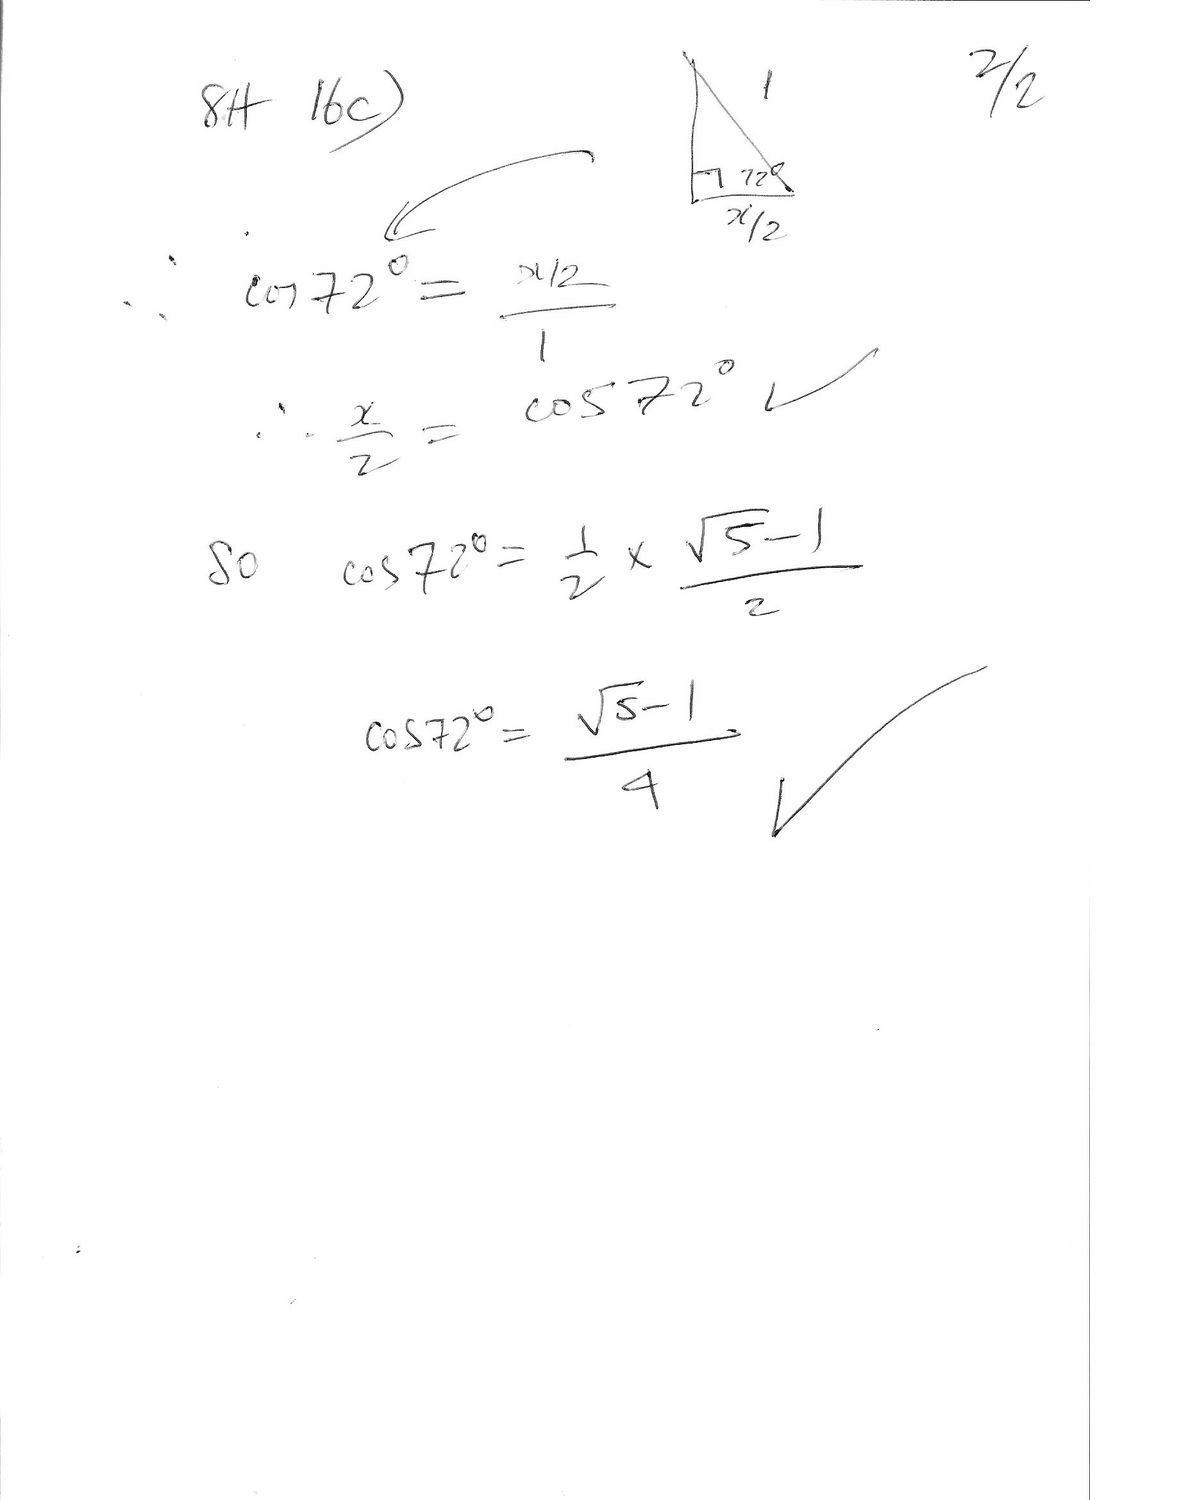 8H 16c)
1
72°
x/2
2/2
∴ cos72° = x/2 / 1
∴ x/2 = cos72° ✓
So cos72° = 1/2 × (√5-1)/2
cos72° = (√5-1)/4 ✓